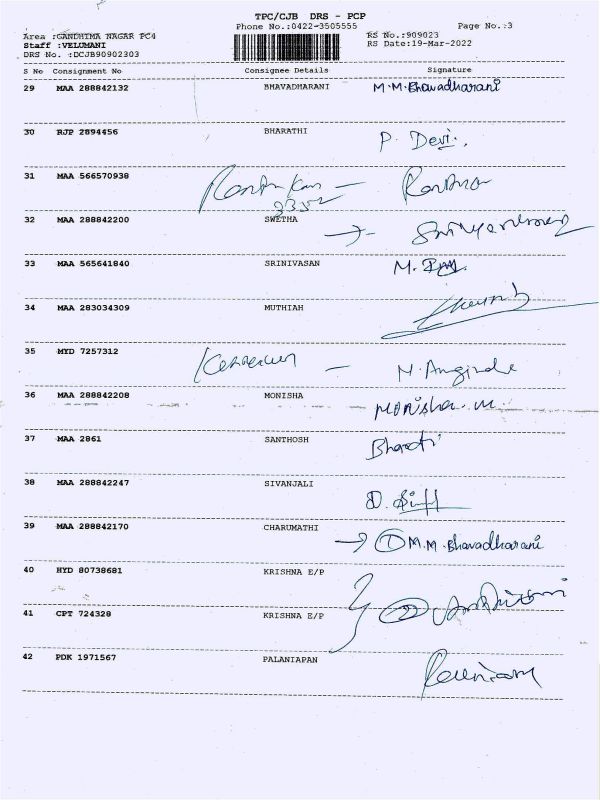 TPC/CJB DRS - PCP
Phone No.:0422-3505555 Page No.:3
Area :GANDHIMA NAGAR PC4 RS No.:909023
Staff :VELUMANI RS Date:19-Mar-2022
DRS No. :DCJB90902303
S No Consignment No Consignee Details Signature
29 MAA 288842132 BHAVADHARANI M.M.Bhavadharani
30 RJP 2894456 BHARATHI P. Devi.
31 MAA 566570938
32 MAA 288842200 SWETHA
33 MAA 565641840 SRINIVASAN M.
34 MAA 283034309 MUTHIAH
35 MYD 7257312
36 MAA 288842208 MONISHA Monisha. M.
37 MAA 2861 SANTHOSH Bharati
38 MAA 288842247 SIVANJALI
39 MAA 288842170 CHARUMATHI → ① M.M.Bhavadharani
40 HYD 80738681 KRISHNA E/P
41 CPT 724328 KRISHNA E/P ②
42 PDK 1971567 PALANIAPAN